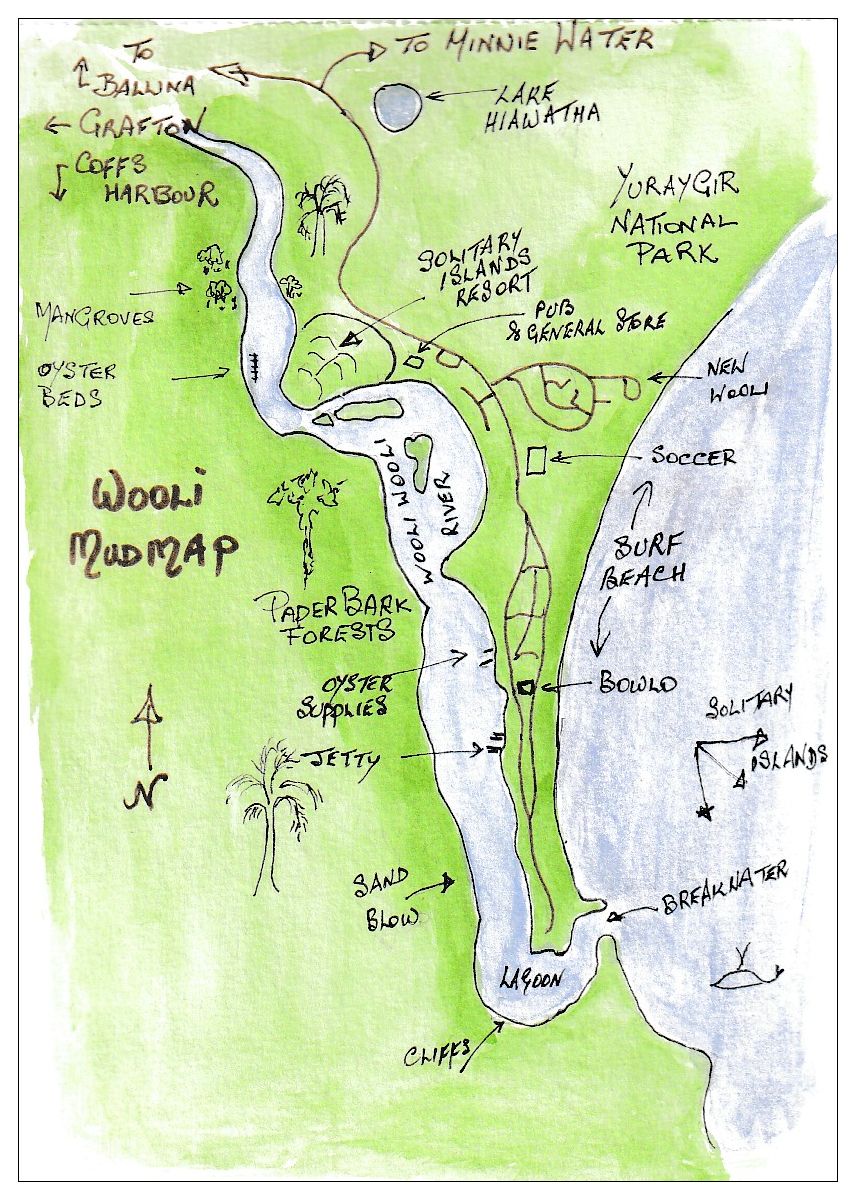 TO
BALLINA
GRAFTON
COFFS
HARBOUR
TO MINNIE WATER
LAKE
HIAWATHA
YURAYGIR
NATIONAL
PARK
SOLITARY
ISLANDS
RESORT
PUB
& GENERAL STORE
MANGROVES
OYSTER
BEDS
NEW
WOOLI
SOCCER
WOOLI WOOLI
RIVER
WOOLI
MUDMAP
SURF
BEACH
PAPERBARK
FORESTS
OYSTER
SUPPLIES
BOWLO
SOLITARY
ISLANDS
JETTY
N
SAND
BLOW
BREAKWATER
LAGOON
CLIFFS